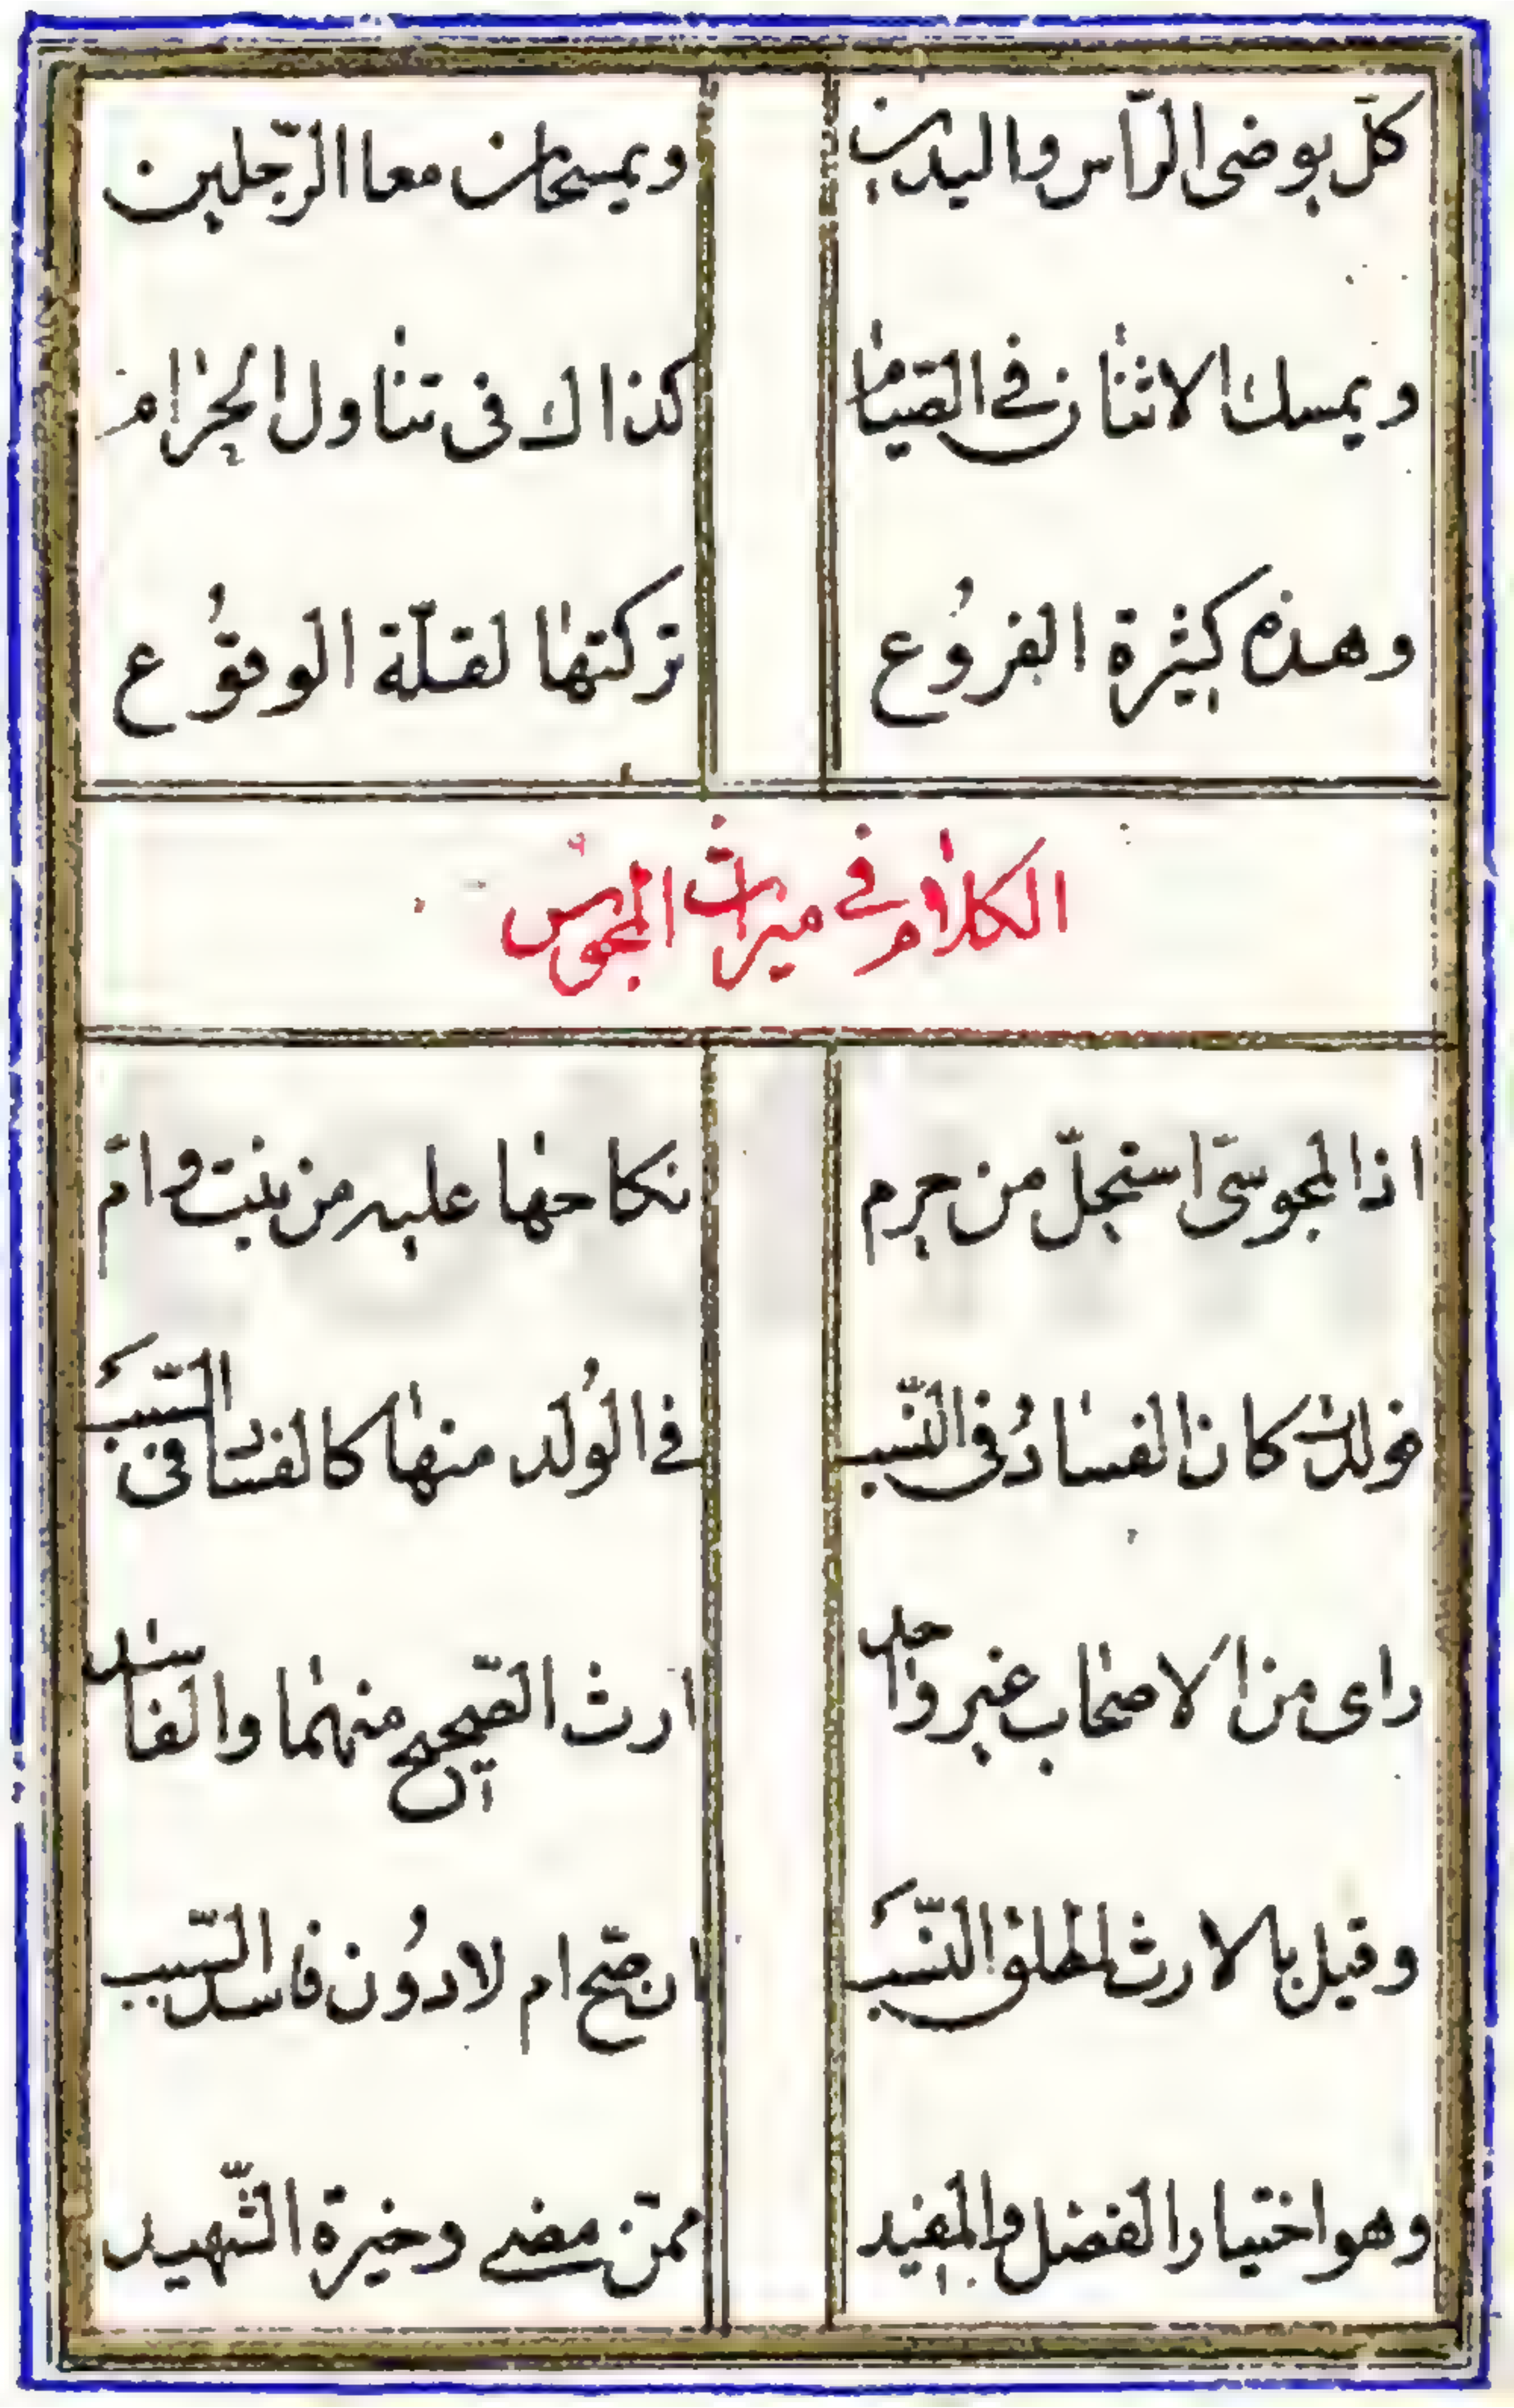 كلّ يوضى الرّاس واليدين ويمسحان معا الرّجلين
ويمسك الاثنان في الصّيام كذاك فى تناول الحرام
وهذه كثيرة الفروع تركتها لقلّة الوقوع
الكلام في ميراث المجوس
اذا المجوسىّ استحلّ من حرم نكاحها عليه من بنت وامّ
فولدت كان الفساد فى النّسب في الولد منها كالفساد فى السّبب
راى من الاصحاب غير واحد ارث الصّحيح منهما والفاسد
وقيل بالارث لمطلق النّسب ان صحّ ام لا دون فاسد السّبب
وهو اختيار الفضل والمفيد ممّن مضى وخيرة الشّهيد